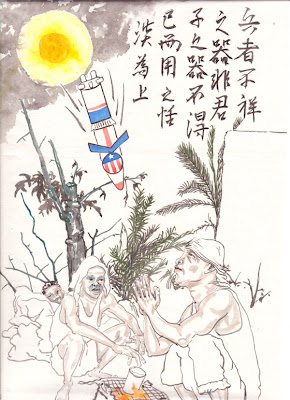 兵者不祥
之器非君
子之器不得
已而用之恬
淡為上